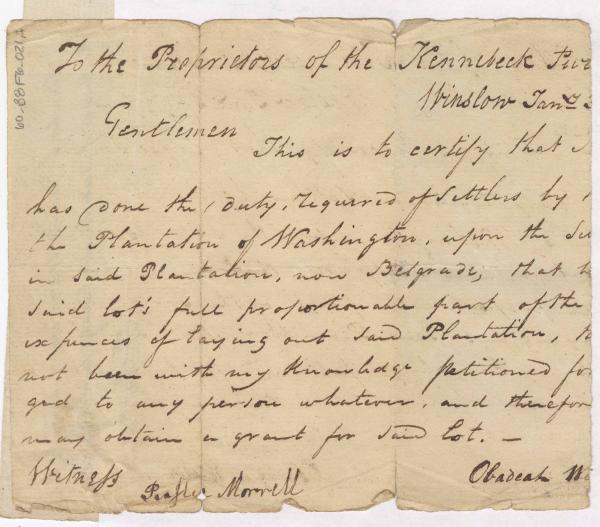 60-88F6-021A
To the Proprietors of the Kennebeck Pur
Winslow Jany
Gentlemen
This is to certify that
has done the duty, required of Settlers by
the Plantation of Washington, upon the
in said Plantation, now Belgrade; that h
said lot's full proportionable part of the
expences of laying out said Plantation, th
not been with my Knowledge petitioned for
ged to any person whatever, and therefor
may obtain a grant for said lot. –
Witness
Morrell
Obadeah W